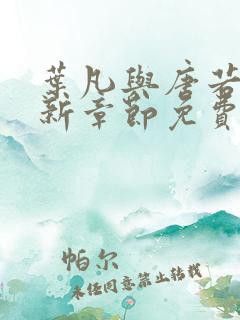 葉凡與唐若
新章節免費
帕尔
未经同意禁止转载